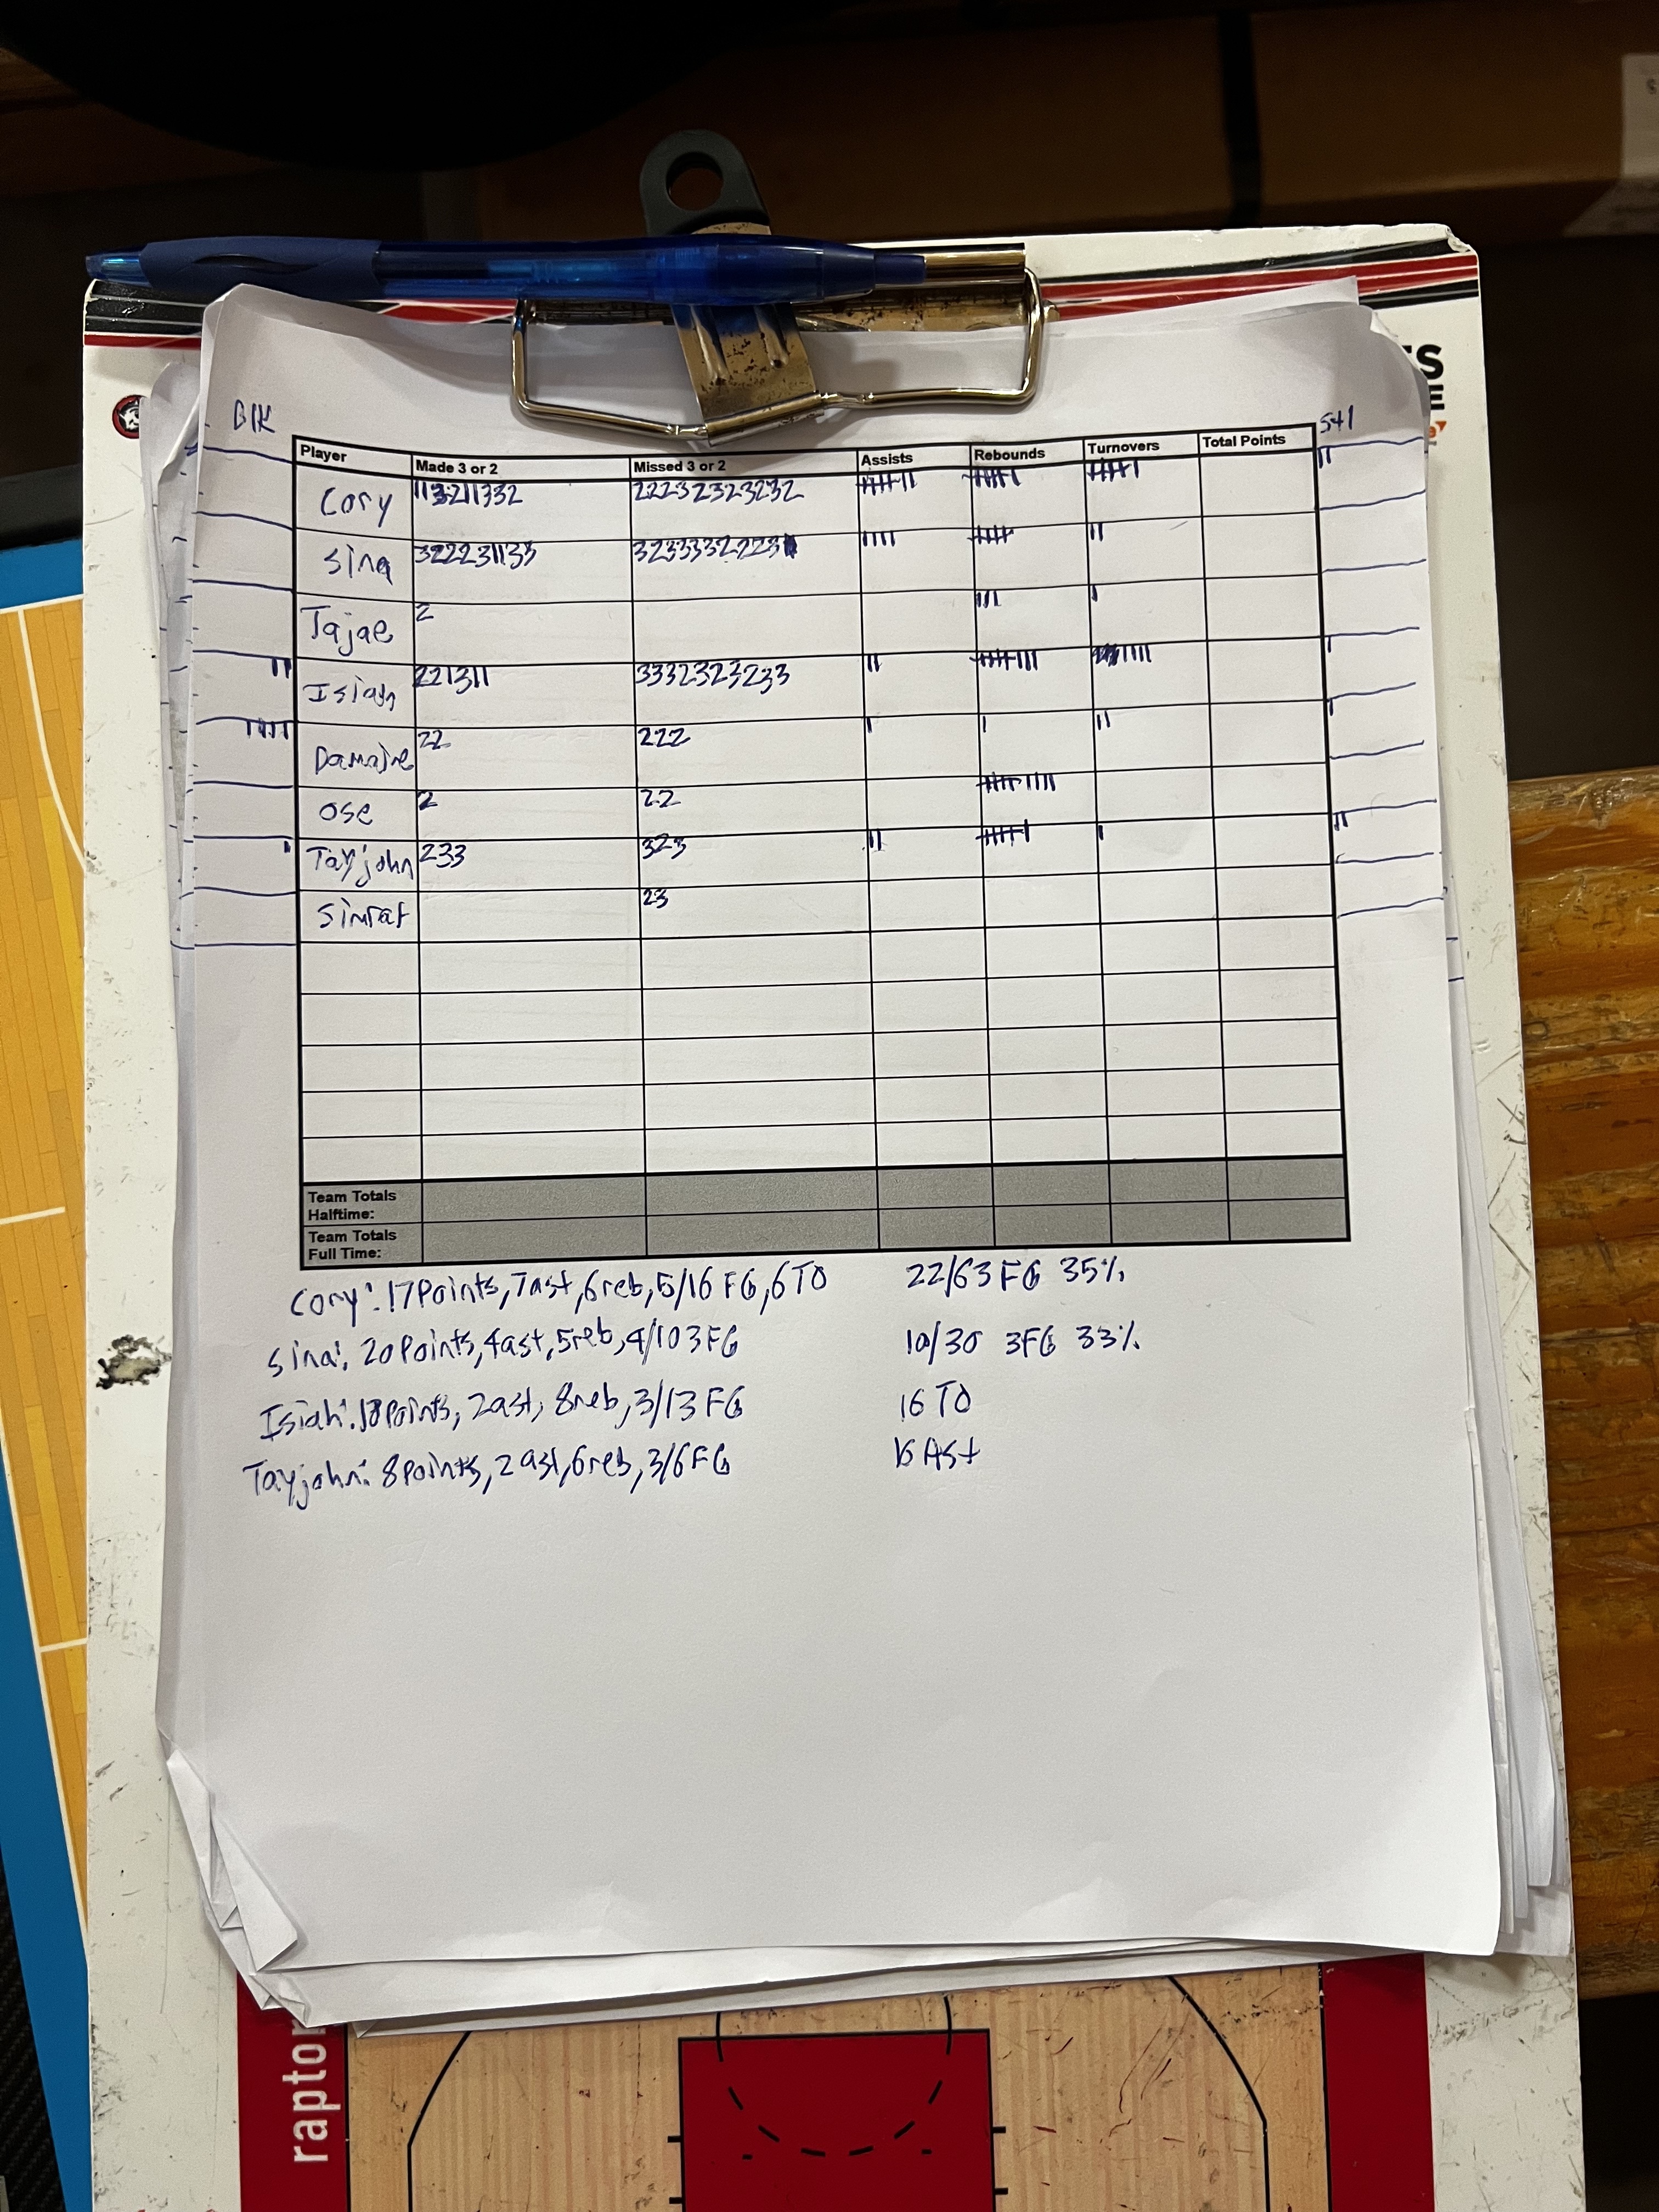 BLK
stl
Player Made 3 or 2 Missed 3 or 2 Assists Rebounds Turnovers Total Points
Cory 113211332 22232323232
Sina 322231133 3233332223
Tajae 2
Isiah 221311 3332323233
Damajre 22 222
Ose 2 22
Tayjohn 233 323
Simrat 23
Team Totals
Halftime:
Team Totals
Full Time:
Cory: 17 Points, 7ast, 6reb, 5/16 FG, 6 TO
22/63 FG 35%
Sina: 20 Points, 4ast, 5reb, 4/10 3FG
10/30 3FG 33%
Isiah: Points, 2ast, 8reb, 3/13 FG
16 TO
Tayjohn: 8 Points, 2ast, 6reb, 3/6 FG
Ast
raptor